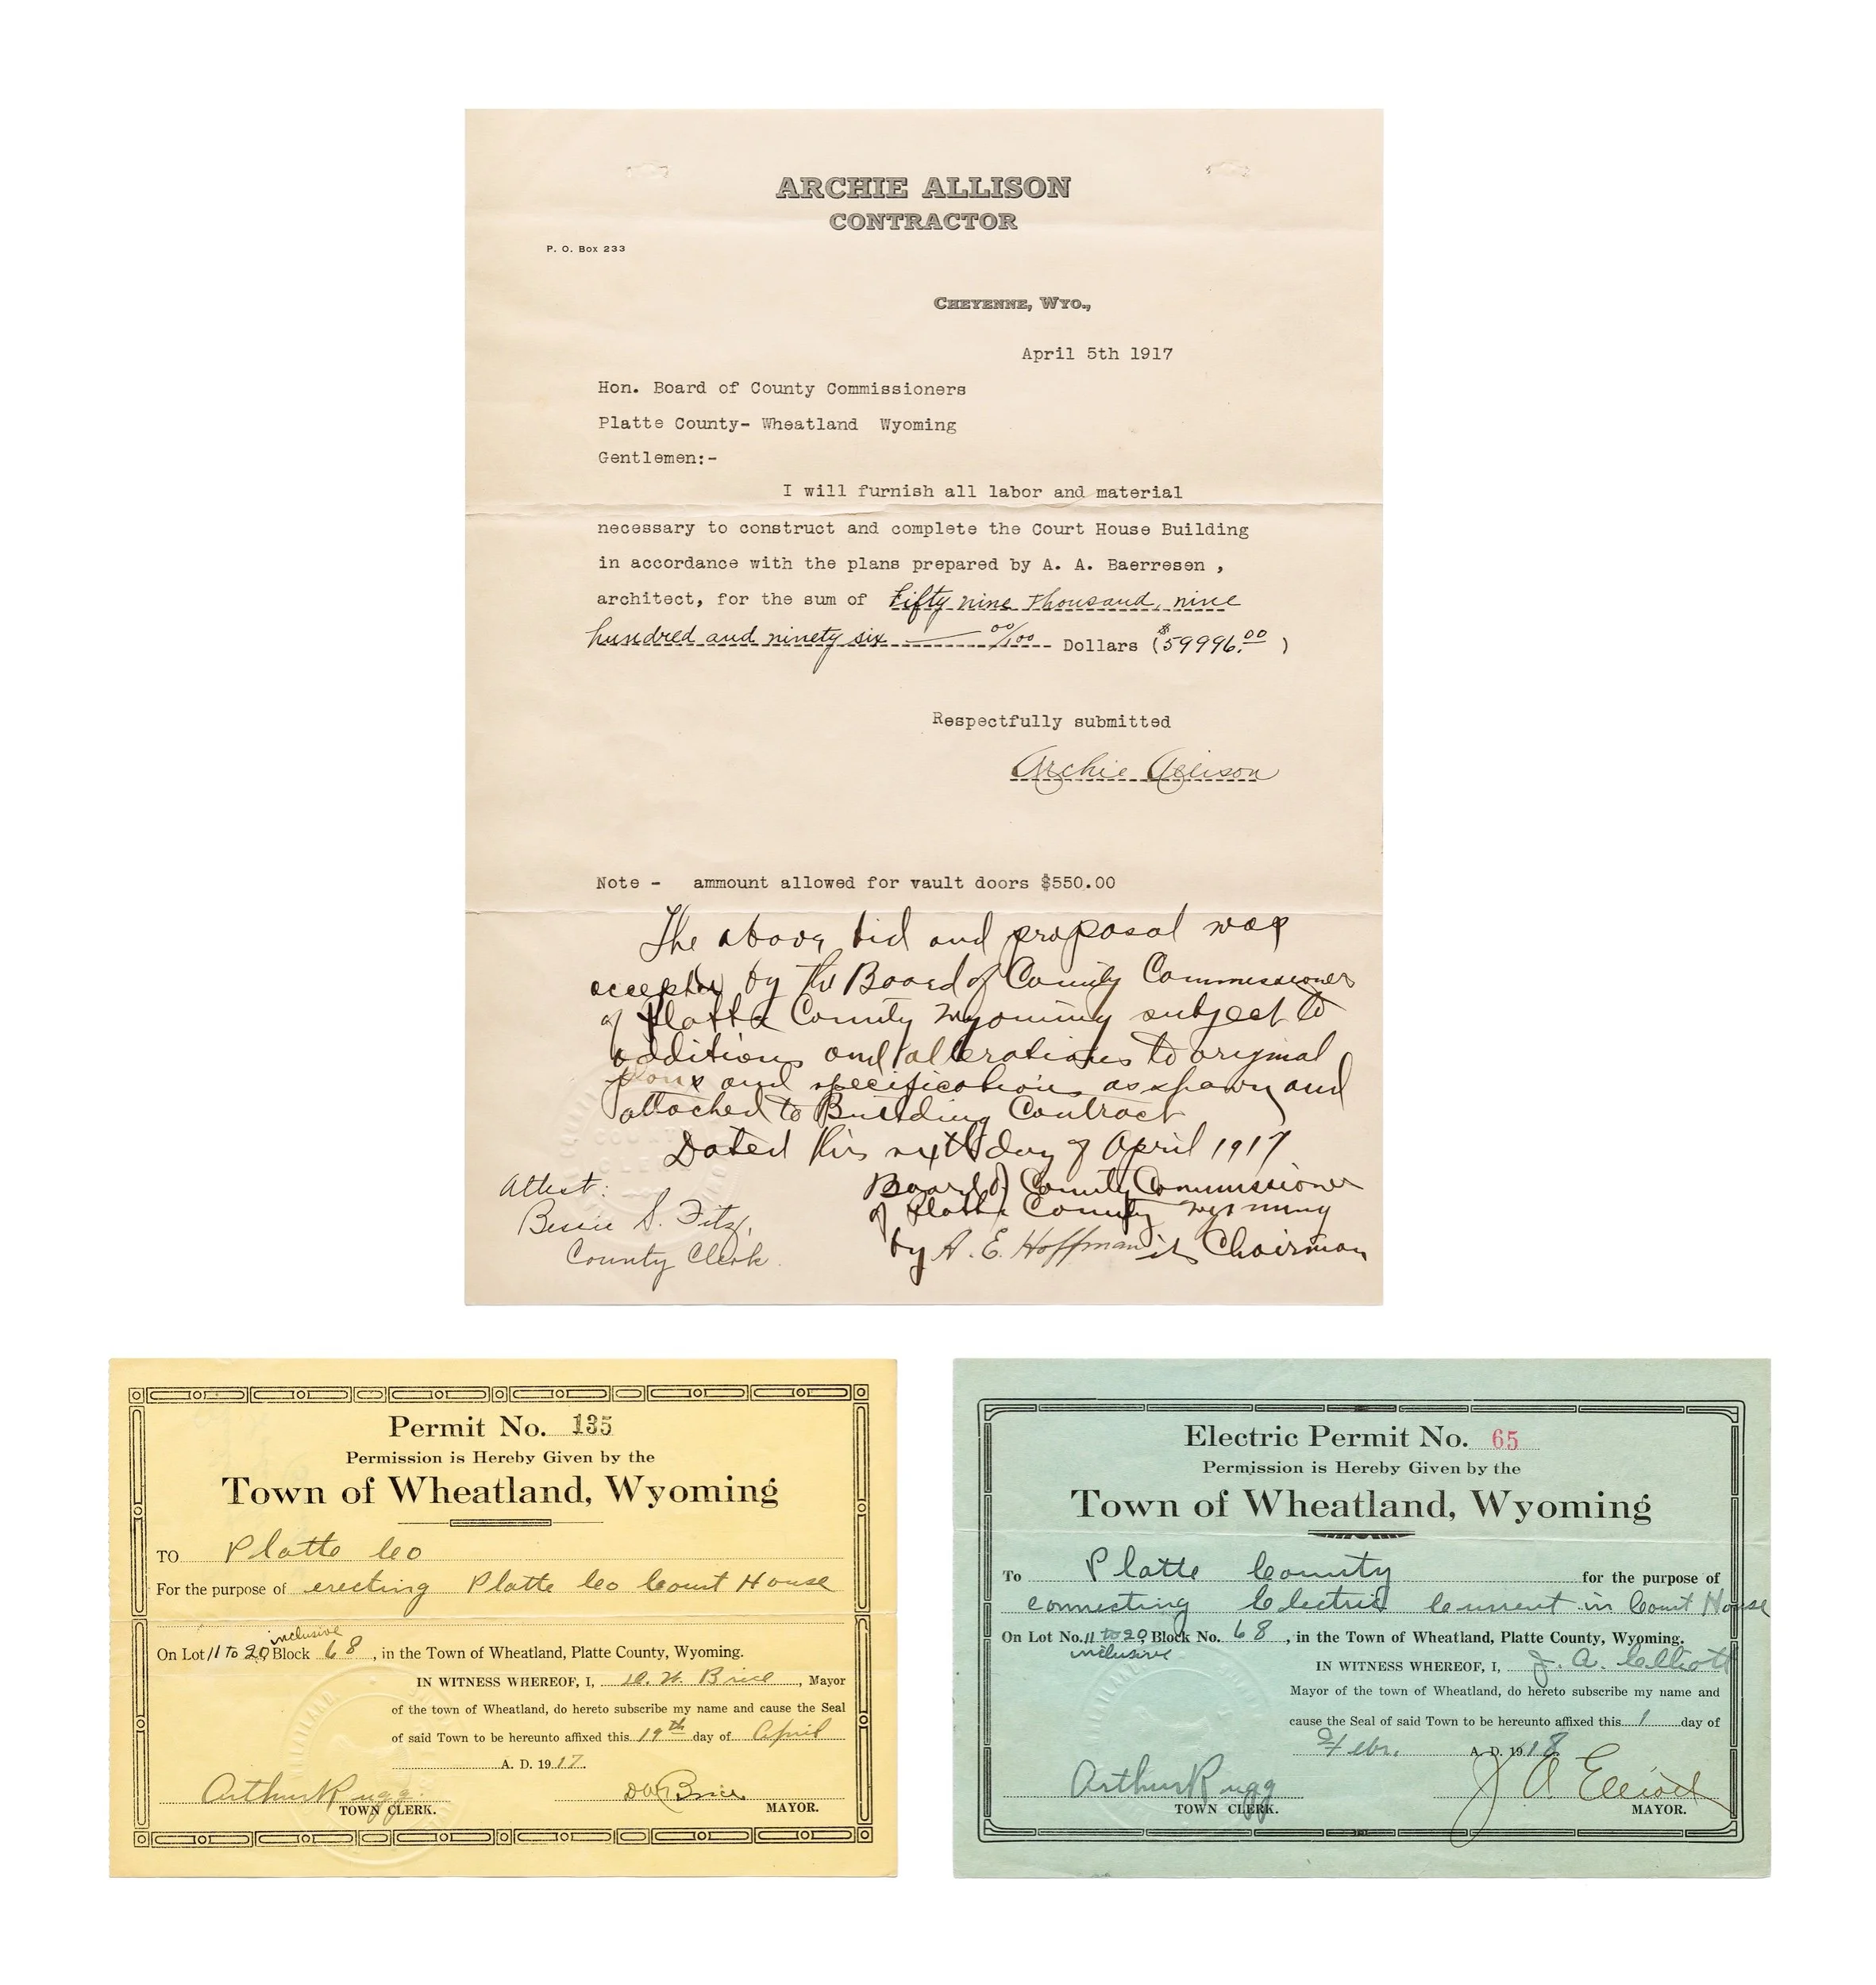 ARCHIE ALLISON
CONTRACTOR
P. O. Box 233
CHEYENNE, WYO.,
April 5th 1917
Hon. Board of County Commissioners
Platte County- Wheatland Wyoming
Gentlemen:-
I will furnish all labor and material
necessary to construct and complete the Court House Building
in accordance with the plans prepared by A. A. Baerresen ,
architect, for the sum of Fifty nine Thousand, nine
hundred and ninety six 00/100 Dollars ($59996.00 )
Respectfully submitted
Archie Allison
Note - ammount allowed for vault doors $550.00
The above bid and proposal was
accepted by the Board of County Commissioners
of Platte County Wyoming subject to
additions and alterations to original
plans and specifications as shown and
attached to Building Contract
Dated this sixth day of April 1917
Attest:
Bessie S. Fitz,
County Clerk
Board of County Commissioner
of Platte County Wyoming
by A. E. Hoffman its Chairman
Permit No. 135
Permission is Hereby Given by the
Town of Wheatland, Wyoming
TO Platte Co
For the purpose of erecting Platte Co Court House
On Lot 11 To 20 inclusive Block 68, in the Town of Wheatland, Platte County, Wyoming.
IN WITNESS WHEREOF, I, D. W. Brice, Mayor
of the town of Wheatland, do hereto subscribe my name and cause the Seal
of said Town to be hereunto affixed this 19th day of April
A. D. 1917.
Arthur Rugg.
TOWN CLERK.
DW Brice
MAYOR.
Electric Permit No. 65
Permission is Hereby Given by the
Town of Wheatland, Wyoming
To Platte County for the purpose of
connecting Electric Current in Court House
On Lot No. 11 to 20 inclusive, Block No. 68, in the Town of Wheatland, Platte County, Wyoming.
IN WITNESS WHEREOF, I, J. A. Elliott
Mayor of the town of Wheatland, do hereto subscribe my name and
cause the Seal of said Town to be hereunto affixed this 1 day of
Febr. A. D. 1918
Arthur Rugg
TOWN CLERK.
J A Elliott
MAYOR.